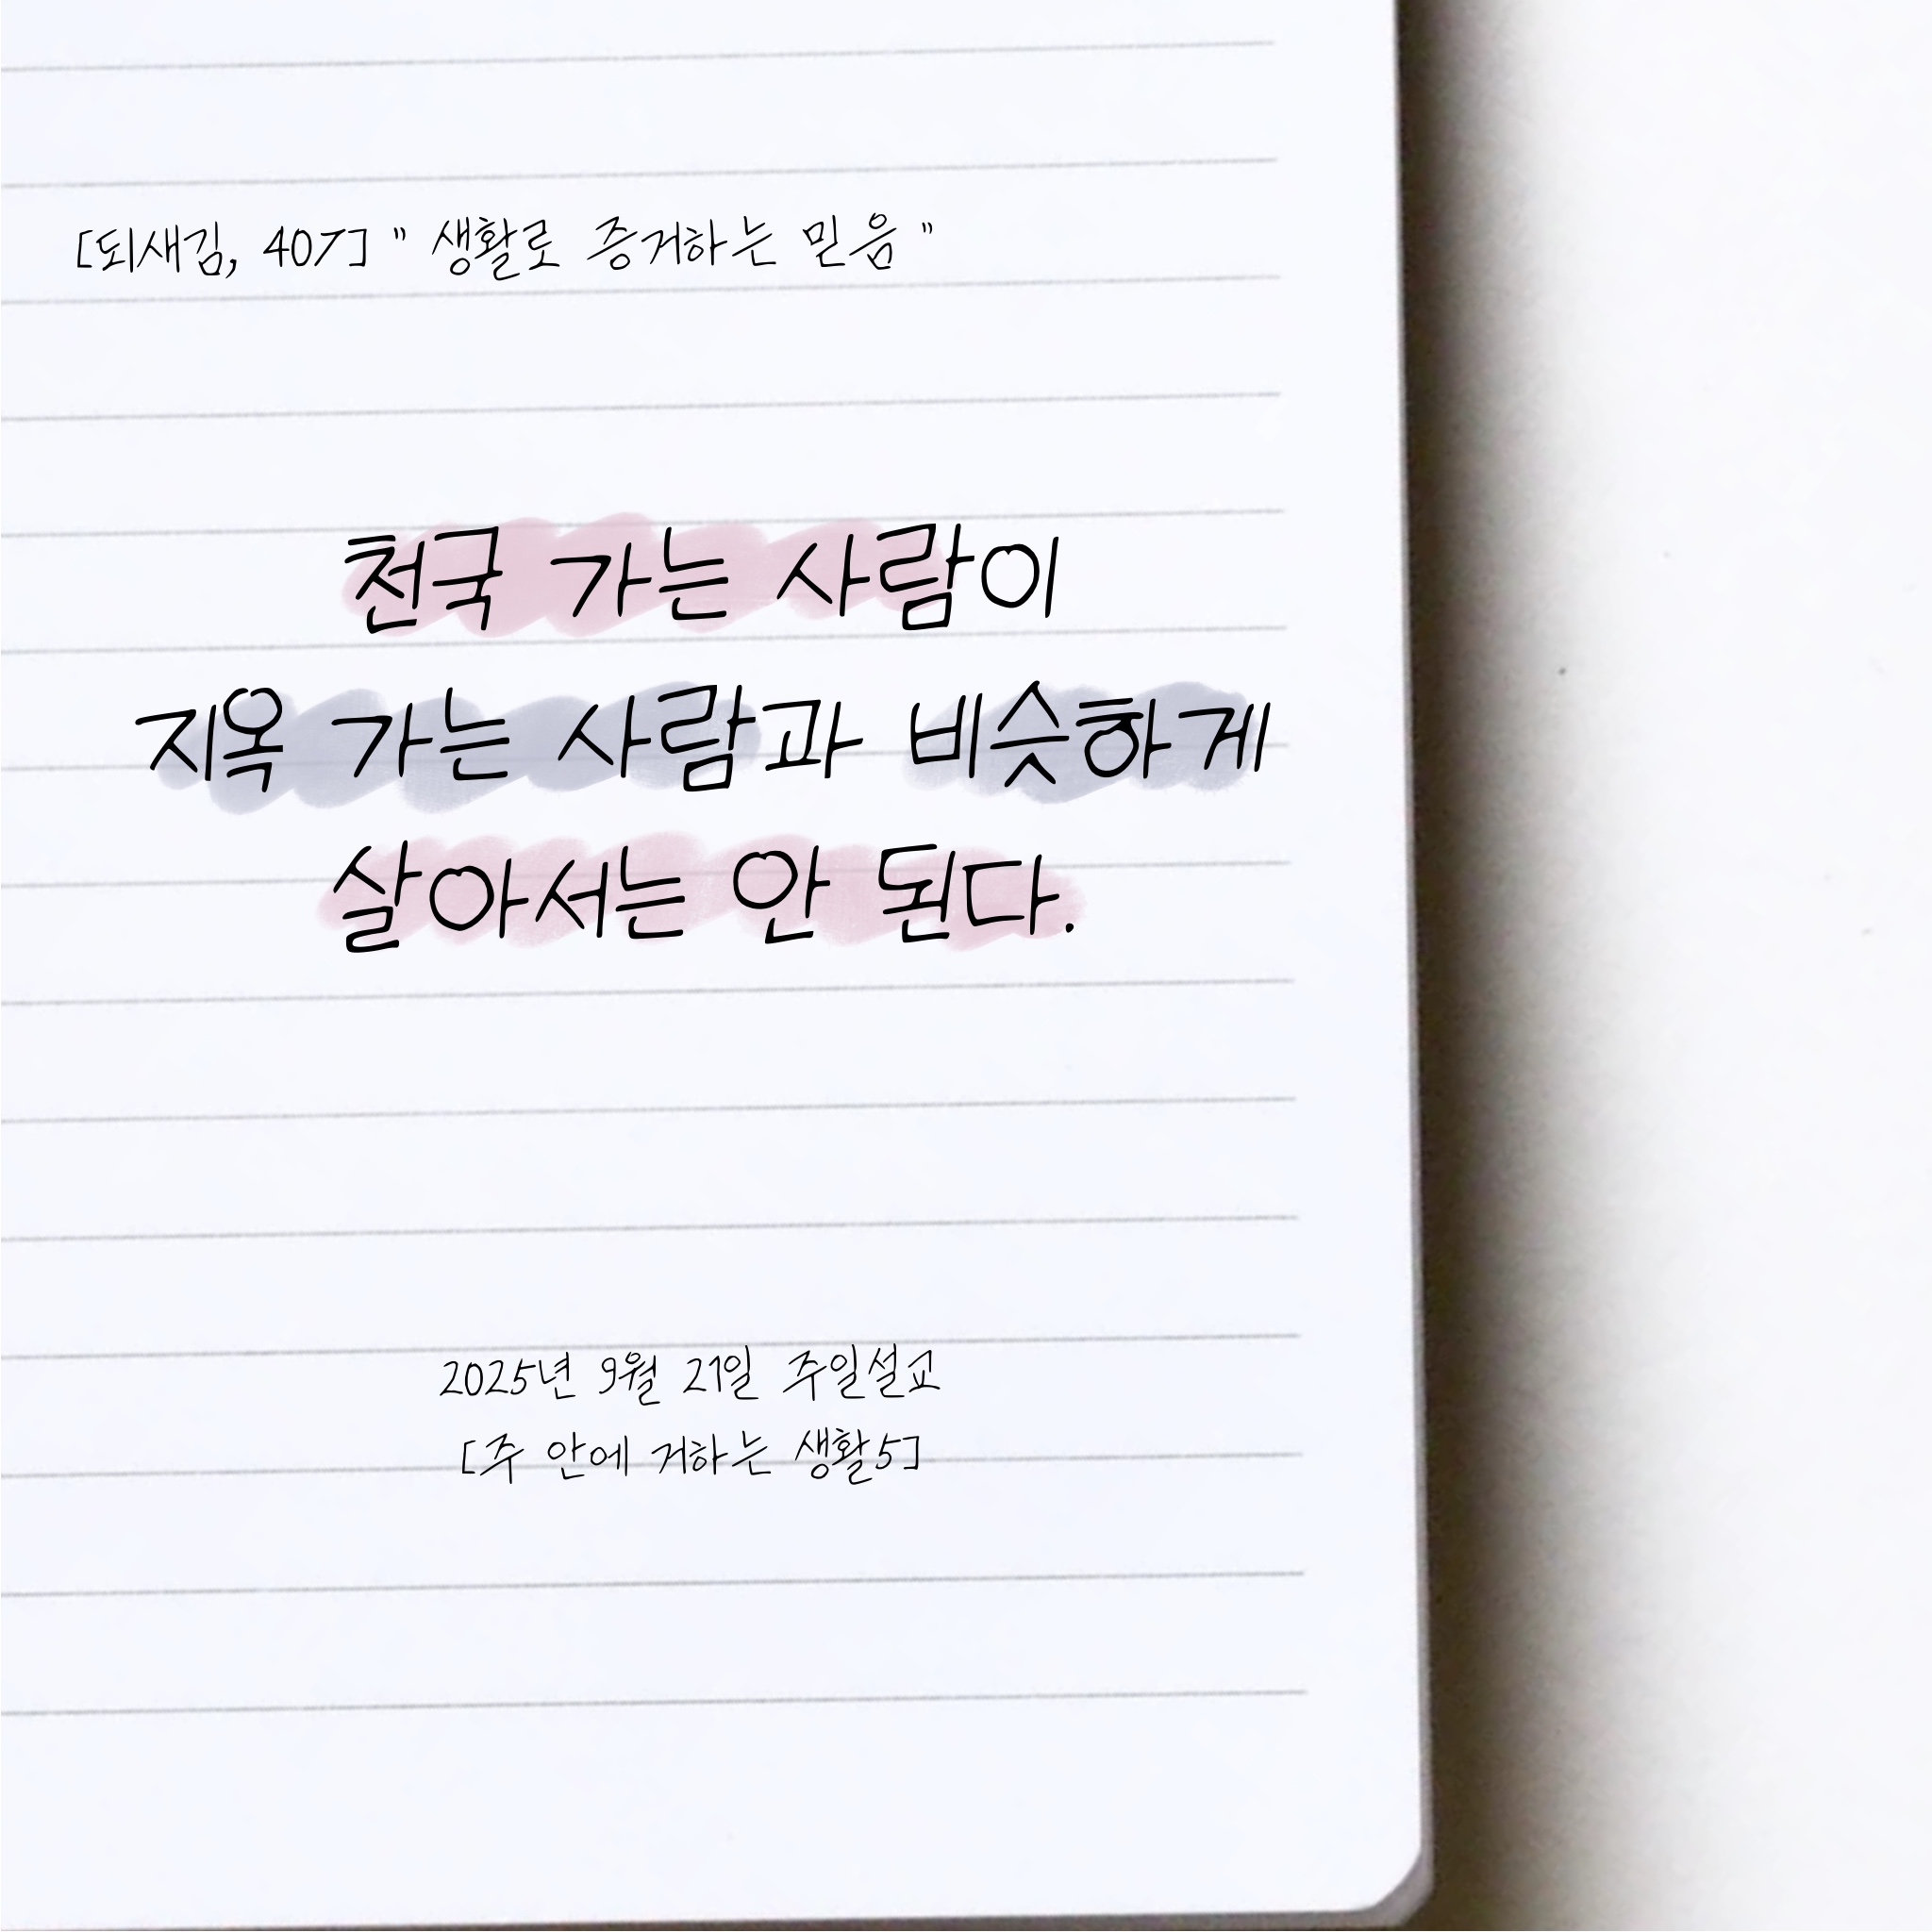 [되새김, 407] " 생활로 증거하는 믿음 "
천국 가는 사람이
지옥 가는 사람과 비슷하게
살아서는 안 된다.
2025년 9월 21일 주일설교
[주 안에 거하는 생활5]